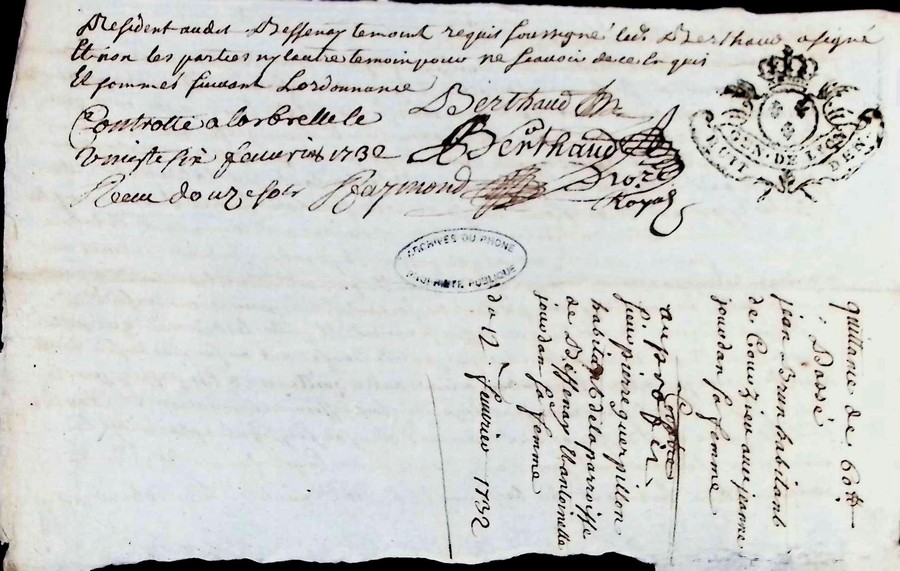 Resident audit Bessenay temoint requis soussigné led. Berthaud a signé
Et non les parties ny lautre temoin pour ne scavoir de ce Enquis
Et sommés suivant Lordonnance Berthaud
Controllé a larbrelle le Berthaud
vingt six feuvrier 1732 No.re
Receu douze sols Raymond Royal
GEN. DE LYON
HUIT DEN.
ARCHIVES DU RHONE
PROPRIETE PUBLIQUE
quittance de 60tt
: Passé
jean Brun habitant
de Courzieu aux
jourdan sa femme
au profit
p.
sieur pierre guerpillon
habitant de la parroisse
de Bessenay Et antoinette
jourdan sa femme
du 12 feuvrier 1732